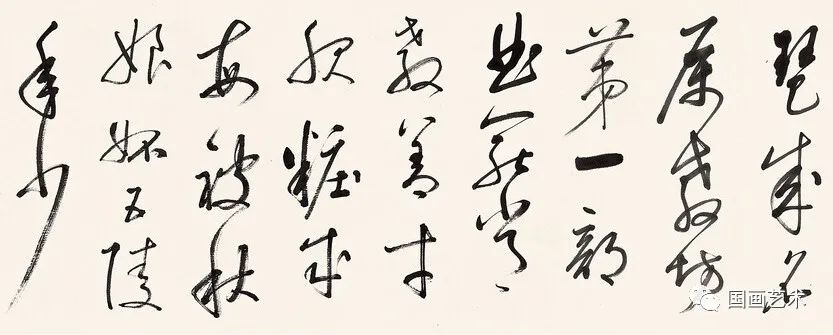 琶成名
属教坊
第一部
曲罷常
教善才
服粧成
每被秋
娘妬五陵
年少
国画艺术